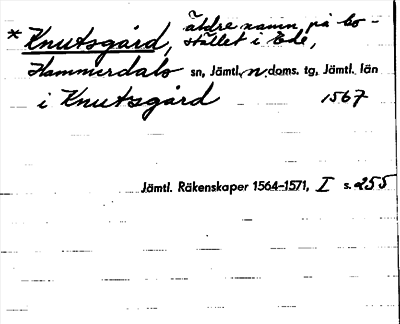 * Knutsgård, äldre namn på bo-
stället i Ede,
Hammerdals sn, Jämtl. n. doms. tg, Jämtl. län
i Knutsgård 1567
Jämtl. Räkenskaper 1564-1571, I s. 255